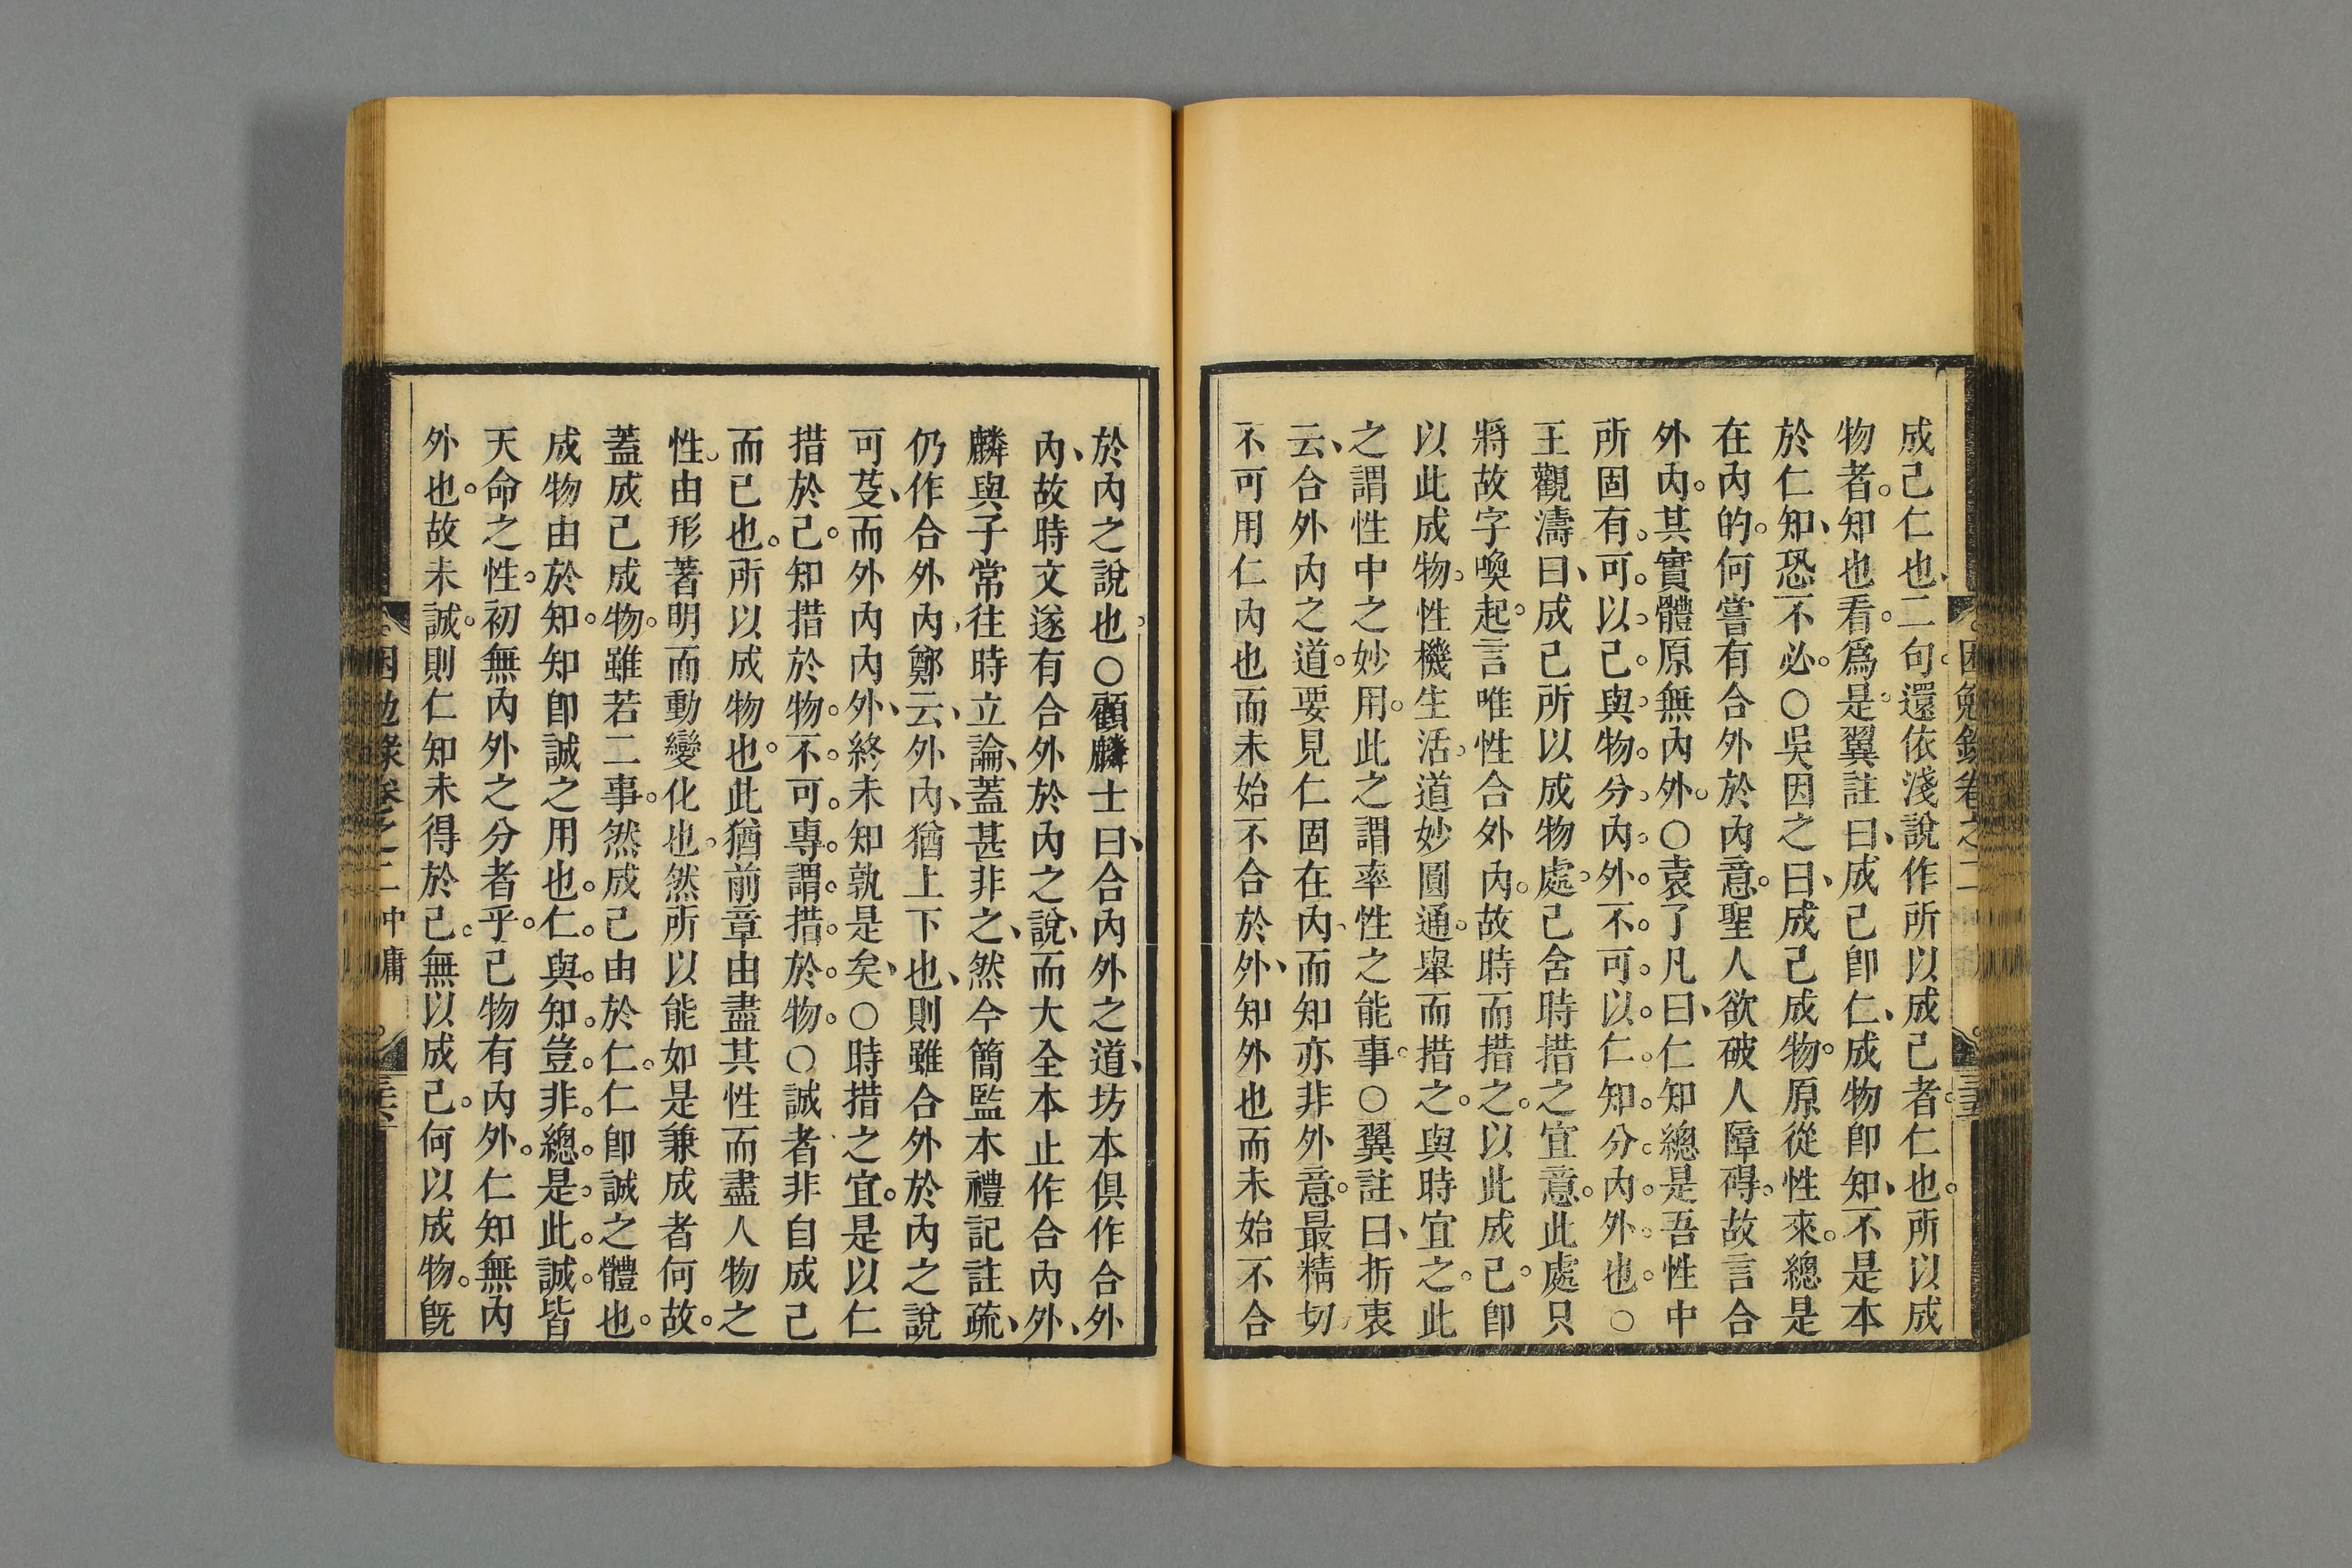 成己仁也、二句。還依淺說作所以成己者。仁也。所以成
物者。知也看。爲是。翼註曰、成己卽仁、成物卽知、不是本
於仁知、恐不必。○吳因之曰、成己成物。原從性來。總是
在內的。何嘗有合外於內意。聖人欲破人障碍。故言合
外內。其實體原無內外。○袁了凡曰、仁知總是吾性中
所固有。可。以。己。與。物。分。內。外。不。可。以。仁。知。分。內。外。也。○
王觀濤曰、成己所以成物處。己舍時措之宜意。此處只
將故字喚起。言唯性合外內。故時而措之。以此成己。卽
以此成物。性機生活。道妙圓通。舉而措之。與時宜之。此
之謂性中之妙用。此之謂率性之能事。○翼註曰、折衷
云、合外內之道。要見仁固在內、而知亦非外意。最精切
不可用仁內也而未始不合於外、知外也而未始不合
於內之說也。○顧麟士曰、合內外之道、坊本俱作合外
內、故時文遂有合外於內之說、而大全本止作合內外、
麟與子常往時立論、蓋甚非之、然今簡監本禮記註疏、
仍作合外內、鄭云、外內、猶上下也、則雖合外於內之說
可芟、而外內內外、終未知孰是矣、○時措之宜。是以仁
措於己。知措於物。不。可。專。謂。措。於。物。○誠者非自成己
而已也。所以成物也。此猶前章由盡其性而盡人物之
性。由形著明而動變化也。然所以能如是兼成者何故。
蓋成己成物。雖若二事。然成己由於仁。仁卽誠之體也。
成物由於知。知卽誠之用也。仁。與。知。豈。非。總。是。此。誠。皆
天命之性。初無內外之分者乎。己物有內外。仁知無內
外也。故未誠。則仁知未得於己。無以成己。何以成物。旣
困勉錄卷之二 中庸